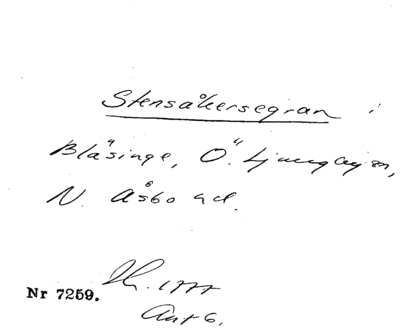 Stensåkersegran i
Bläsinge, Ö. Ljungby sn,
N. Åsbo hd.
Nr 7259.